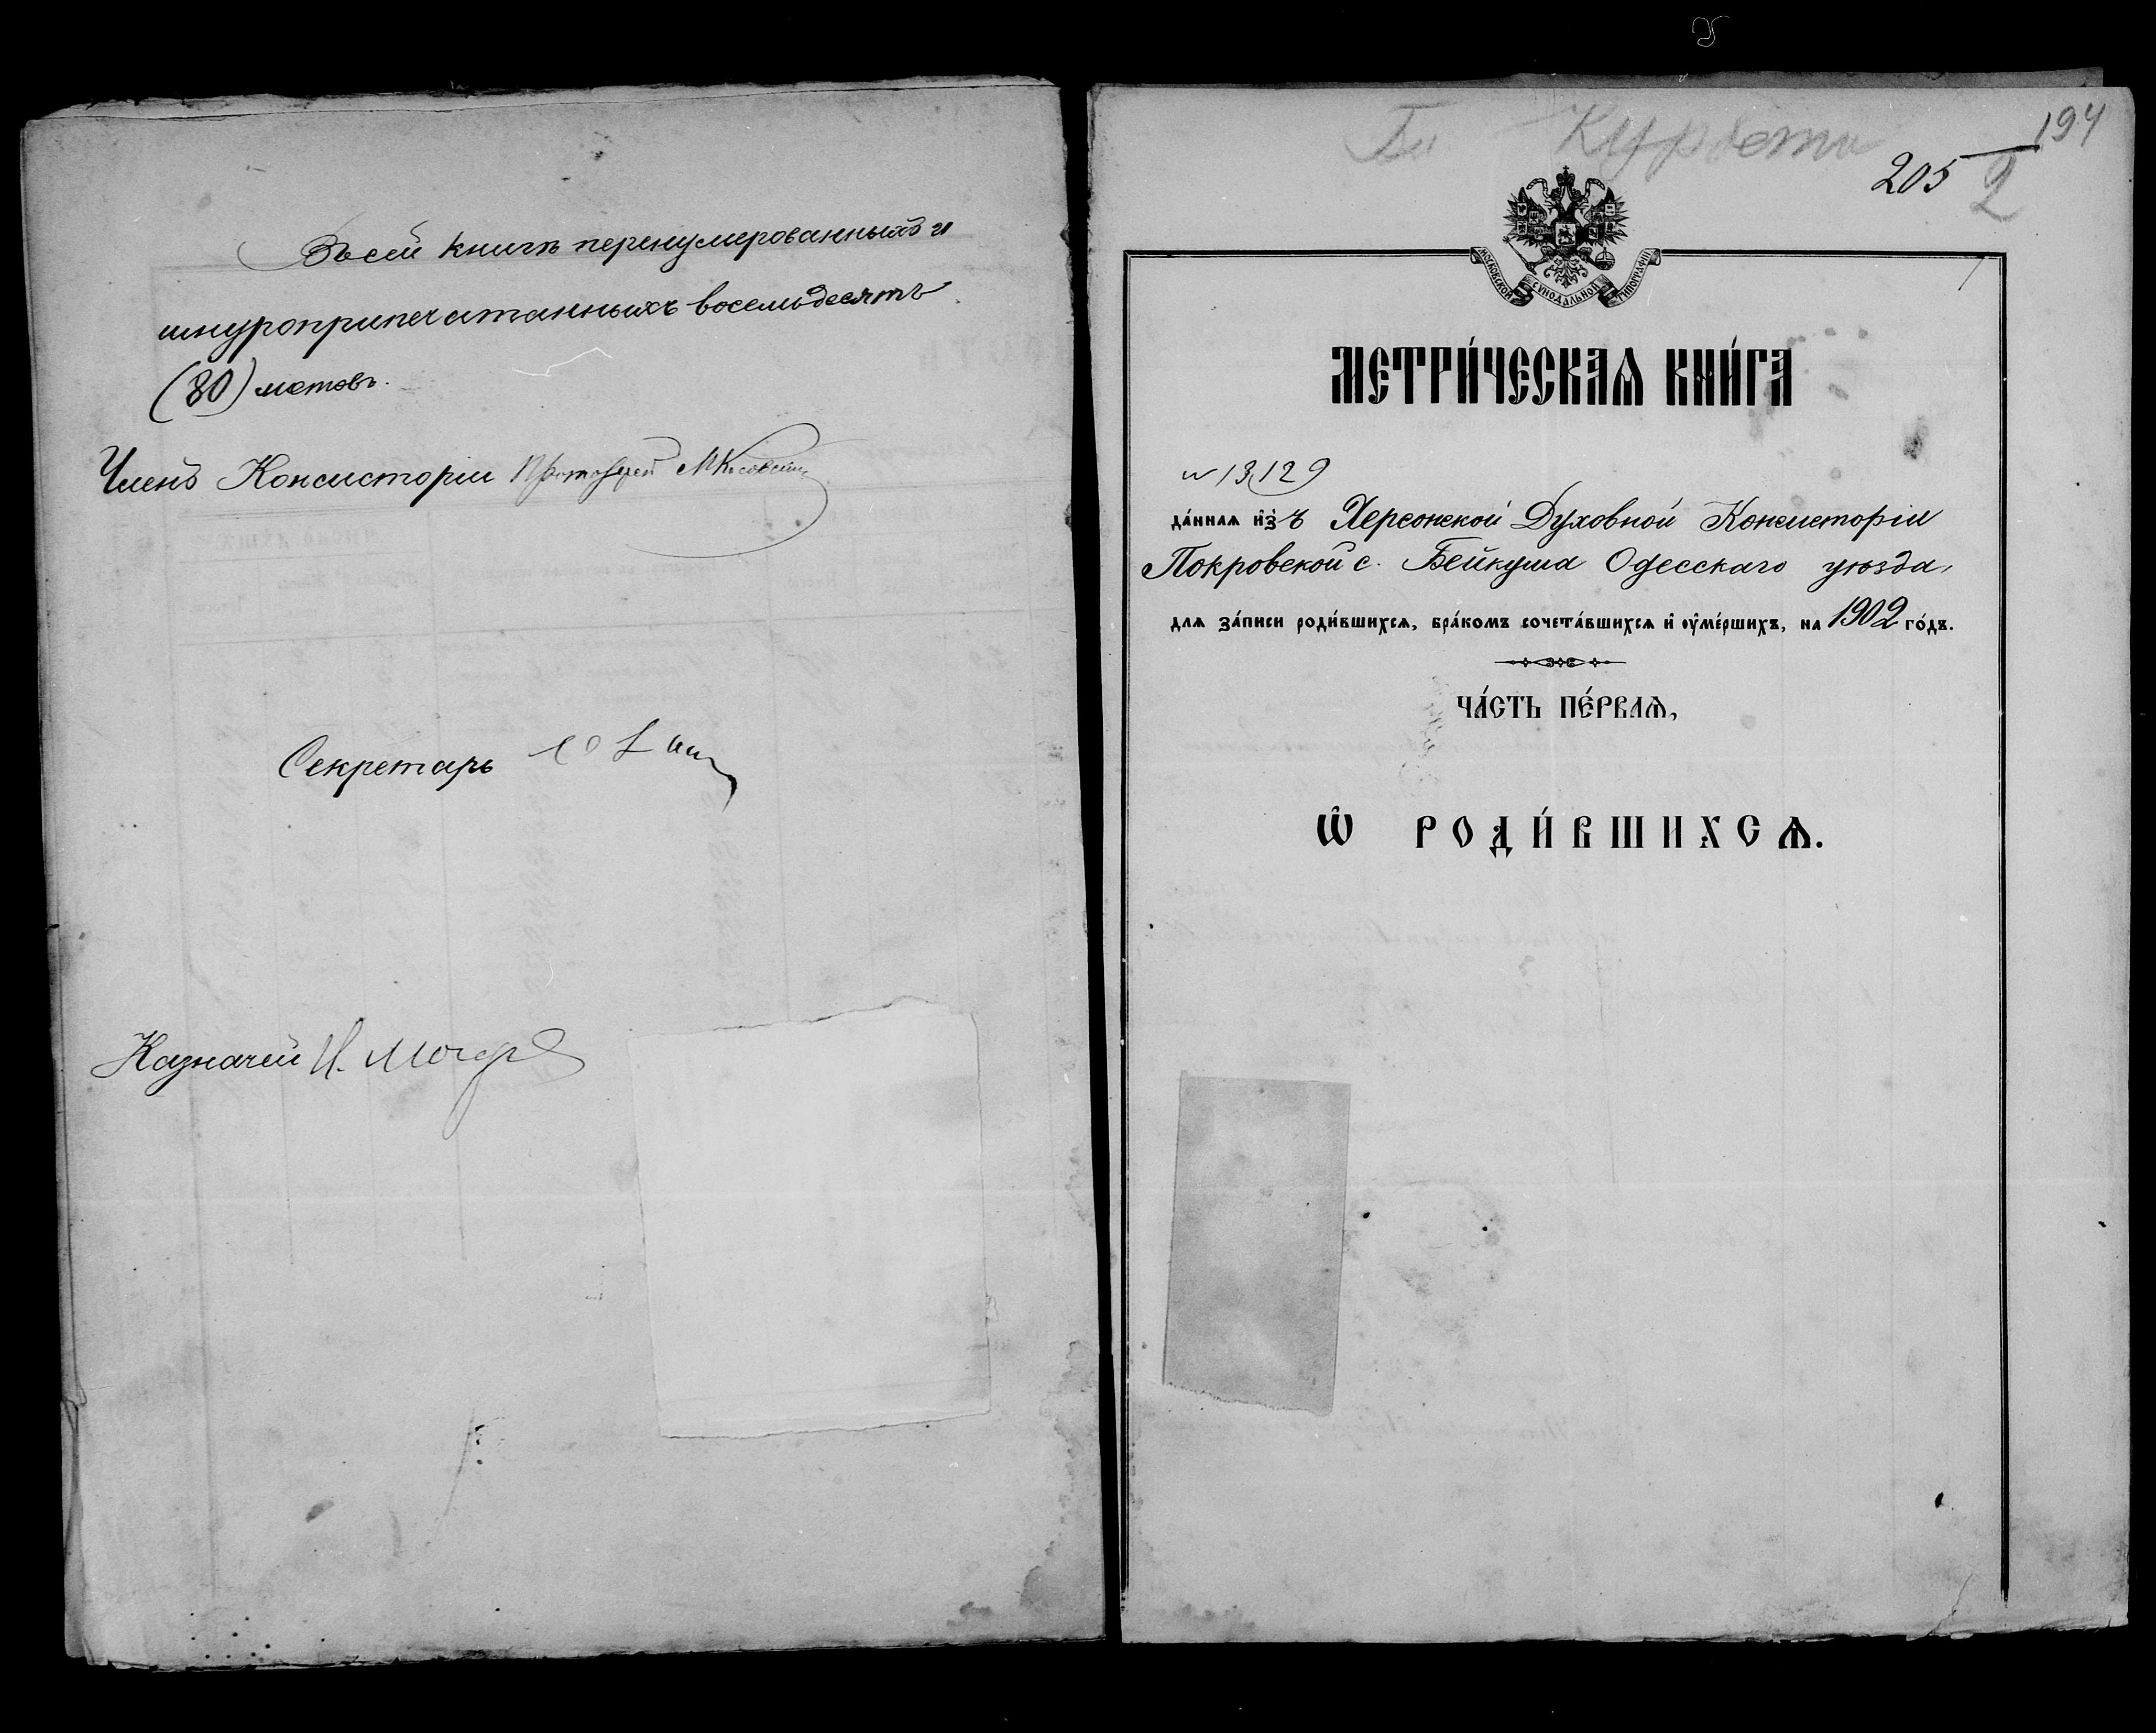 Въ сей книгѣ перенумерованныхъ и
шнуроприпечатанныхъ восемьдесятъ
(80) листовъ.
Членъ Консисторіи Протоіерей
Секретарь
Казначей И.
194
205
2
МОСКОВСКОЙ СѴНОДАЛЬНОЙ ТИПОГРАФІИ
МЕТРИ́ЧЕСКАѦ КНИ́ГА
№ 13129
да́ннаѧ и҆зъ Херсонской Духовной Консисторіи
Покровской с. Бейкуша Одесскаго уѣзда,
длѧ за́писи роди́вшихсѧ, бра́комъ сочета́вшихсѧ и҆ ᲂу҆ме́ршихъ, на 1902 го́дъ.
ЧА́СТЬ ПЕ́РВАѦ,
Ѡ҆ РОДИ́ВШИХСѦ.